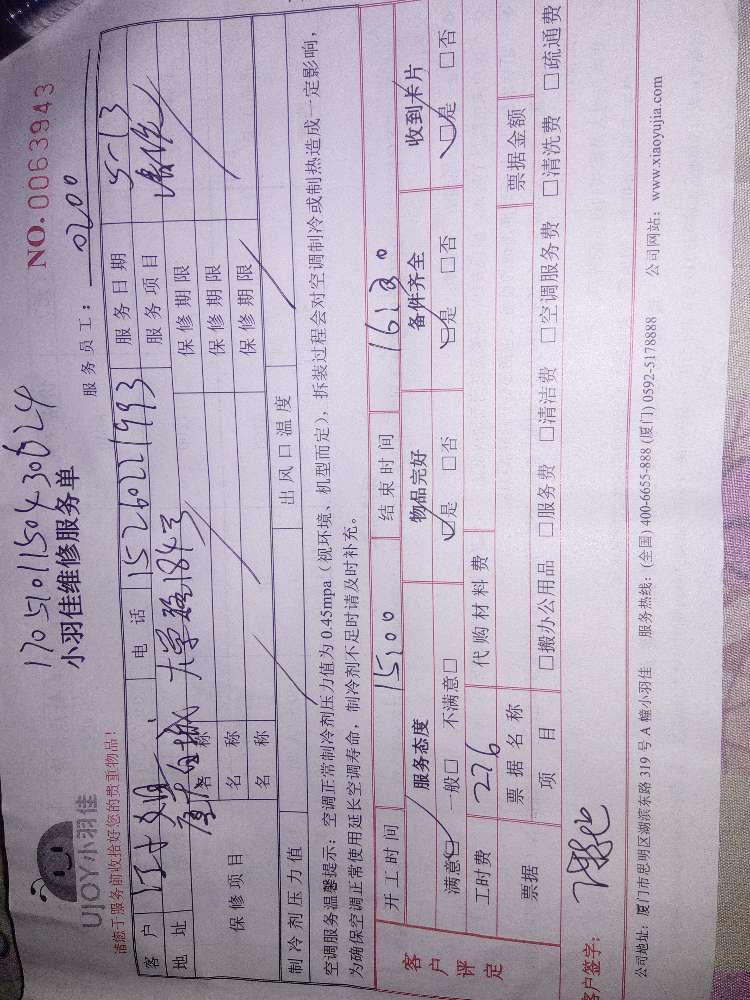 UJOY小羽佳
1705101150430624
小羽佳维修服务单
NO.0063943
请您于服务前收拾好您的贵重物品！
服务员工： 0200
客户 电话 15260221993 服务日期 5-13
地址 厦大白城 大学路184号 服务项目
保修项目 名称 保修期限
名称 保修期限
名称 保修期限
制冷剂压力值 出风口温度
空调服务温馨提示：空调正常制冷剂压力值为 0.45mpa（视环境、机型而定），拆装过程会对空调制冷或制热造成一定影响，
为确保空调正常使用延长空调寿命，制冷剂不足时请及时补充。
客户评定
开工时间 15:00 结束时间
服务态度 物品完好 备件齐全 收到卡片
满意☑ 一般□ 不满意□ ☑是 □否 ☑是 □否 ☑是 □否
工时费 276 代购材料费
票据 票据名称 票据金额
项目 □搬办公用品 □服务费 □清洁费 □空调服务费 □清洗费 □疏通费
客户签字：
公司地址：厦门市思明区湖滨东路 319 号 A 幢小羽佳 服务热线：(全国) 400-6655-888 (厦门) 0592-5178888 公司网站：www.xiaoyujia.com